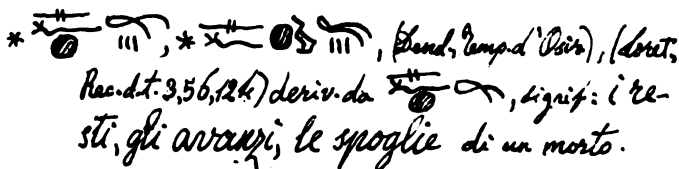 * , * , (Dend, Temp. d'Osir), (Loret,
Rec. d. t. 3,56,124) deriv. da , signif: i re-
sti, gli avanzi, le spoglie di un morto.